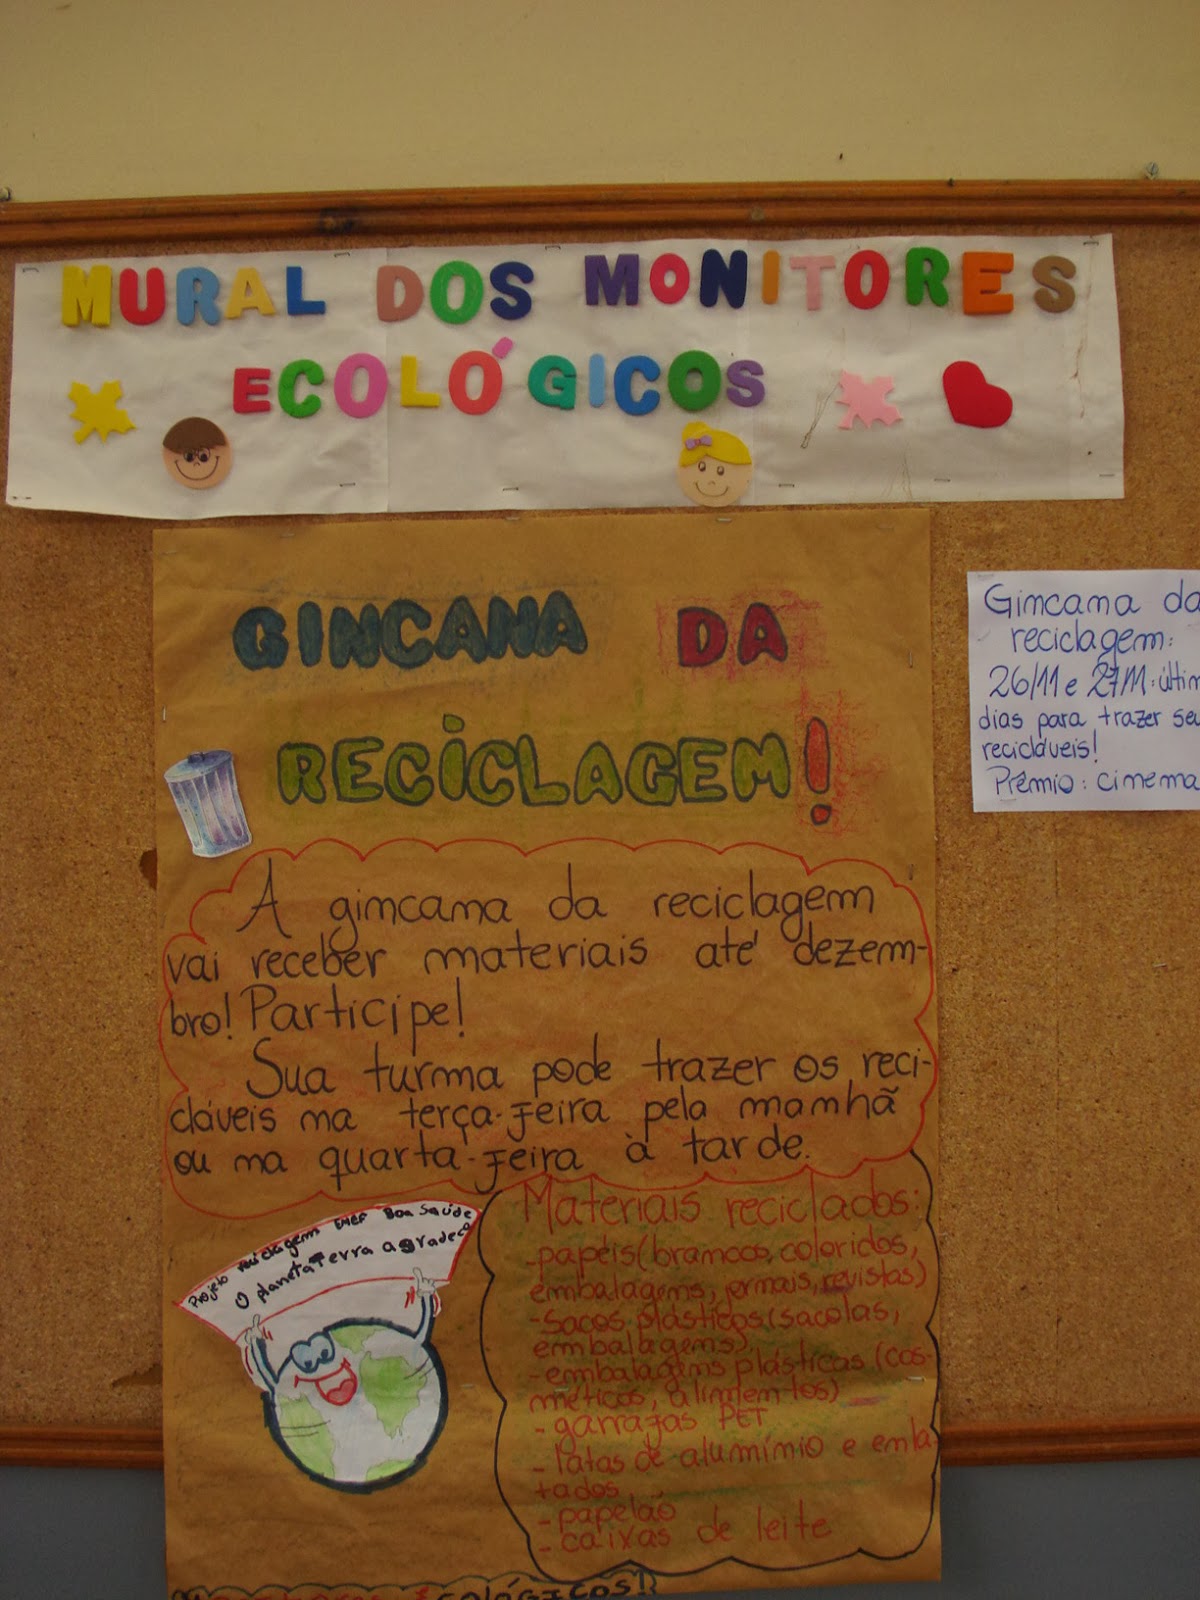 MURAL DOS MONITORES
ECOLÓGICOS
GINCANA DA
RECICLAGEM!
A gincana da reciclagem
vai receber materiais até dezem-
bro! Participe!
Sua turma pode trazer os reci-
cláveis na terça-feira pela manhã
ou na quarta-feira à tarde.
Projeto reciclagem EMEF Boa Saúde
O planeta Terra agradece
Materiais reciclados:
-papéis (brancos, coloridos,
embalagens, jornais, revistas)
-sacos plásticos (sacolas,
embalagens)
-embalagens plásticas (cos-
méticos, alimentos)
- garrafas PET
- latas de alumínio e enla-
tados
- papelão
- caixas de leite
ECOLÓGICOS!
Gincana da
reciclagem:
26/11 e 27/11: últim
dias para trazer seu
recicláveis!
Prêmio: cinema